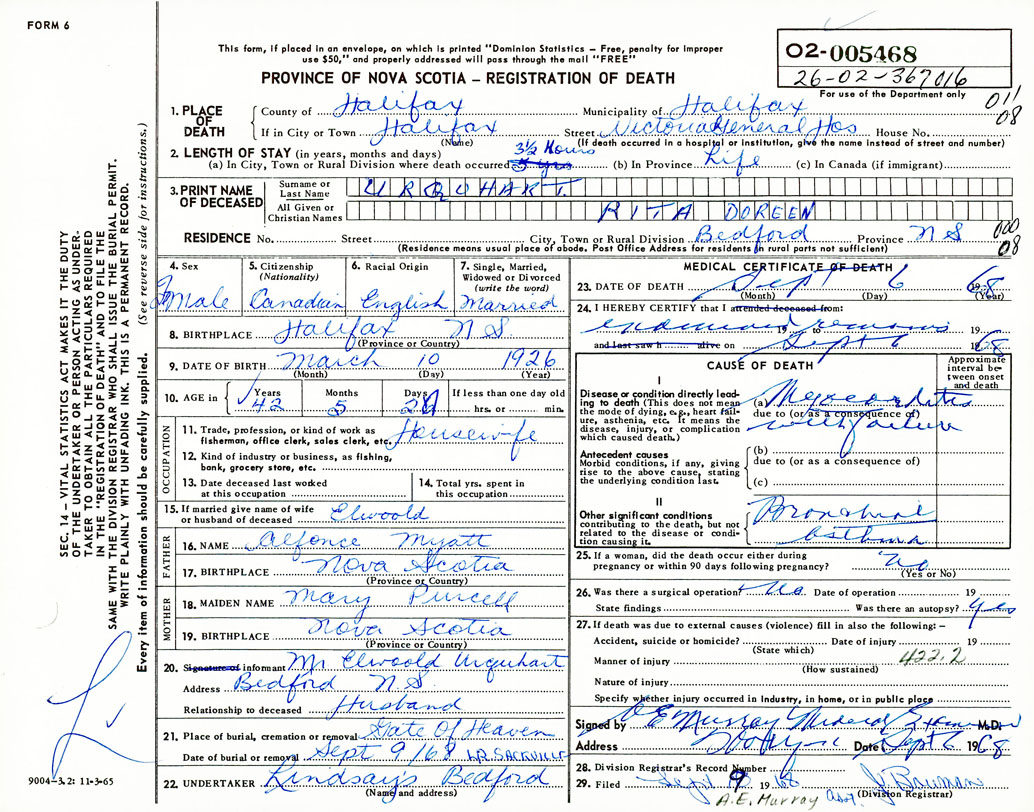 FORM 6
This form, if placed in an envelope, on which is printed "Dominion Statistics – Free, penalty for improper
use $50," and properly addressed will pass through the mail "FREE"
PROVINCE OF NOVA SCOTIA – REGISTRATION OF DEATH
O2-005468
26-02-367016
For use of the Department only
011
08
1. PLACE OF DEATH
County of Halifax Municipality of Halifax
If in City or Town Halifax Street Victoria General Hos House No.
(Name) (If death occurred in a hospital or institution, give the name instead of street and number)
2. LENGTH OF STAY (in years, months and days) 3½ Hours
(a) In City, Town or Rural Division where death occurred 5 yrs (b) In Province Life (c) In Canada (if immigrant)
3. PRINT NAME OF DECEASED
Surname or Last Name URQUHART
All Given or Christian Names RITA DOREEN
RESIDENCE No. Street City, Town or Rural Division Bedford Province N S
000
08
(Residence means usual place of abode. Post Office Address for residents in rural parts not sufficient)
4. Sex Female
5. Citizenship (Nationality) Canadian
6. Racial Origin English
7. Single, Married, Widowed or Divorced (write the word) Married
8. BIRTHPLACE Halifax N S
(Province or Country)
9. DATE OF BIRTH March 10 1926
(Month) (Day) (Year)
10. AGE in Years 42 Months 5 Days If less than one day old hrs. or min.
OCCUPATION
11. Trade, profession, or kind of work as fisherman, office clerk, sales clerk, etc. Housewife
12. Kind of industry or business, as fishing, bank, grocery store, etc.
13. Date deceased last worked at this occupation
14. Total yrs. spent in this occupation
15. If married give name of wife or husband of deceased Elwoold
FATHER
16. NAME Alfonce Myatt
17. BIRTHPLACE Nova Scotia
(Province or Country)
MOTHER
18. MAIDEN NAME Mary Purcell
19. BIRTHPLACE Nova Scotia
(Province or Country)
20. Signature of informant Mr Elwoold Urquhart
Address Bedford N.S.
Relationship to deceased Husband
21. Place of burial, cremation or removal Gate Of Heaven
Date of burial or removal Sept 9/68 LR SACKVILLE
22. UNDERTAKER Lindsay's Bedford
(Name and address)
MEDICAL CERTIFICATE OF DEATH
23. DATE OF DEATH Sept 6 68
(Month) (Day) (Year)
24. I HEREBY CERTIFY that I attended deceased from:
examined remains 19 to 19
and last saw h alive on Sept 6 1968
CAUSE OF DEATH
Approximate interval between onset and death
I
Disease or condition directly leading to death (This does not mean the mode of dying, e.g., heart failure, asthenia, etc. It means the disease, injury, or complication which caused death.)
(a) Myocarditis
due to (or as a consequence of)
with failure
Antecedent causes
Morbid conditions, if any, giving rise to the above cause, stating the underlying condition last.
(b)
due to (or as a consequence of)
(c)
II
Other significant conditions contributing to the death, but not related to the disease or condition causing it.
Bronchial
asthma
25. If a woman, did the death occur either during pregnancy or within 90 days following pregnancy? No
(Yes or No)
26. Was there a surgical operation? No Date of operation 19
State findings Was there an autopsy? Yes
27. If death was due to external causes (violence) fill in also the following: –
Accident, suicide or homicide? Date of injury 19
(State which)
Manner of injury 422.2
(How sustained)
Nature of injury
Specify whether injury occurred in Industry, in home, or in public place
Signed by Murray Medical Examiner M.D.
Address Date Sept 6 1968
28. Division Registrar's Record Number
29. Filed Sept 9 1968 J. Bauman
(Division Registrar)
A.E. Murray
SEC. 14 – VITAL STATISTICS ACT MAKES IT THE DUTY
OF THE UNDERTAKER OR PERSON ACTING AS UNDER-
TAKER TO OBTAIN ALL THE PARTICULARS REQUIRED
IN THE "REGISTRATION OF DEATH" AND TO FILE THE
SAME WITH THE DIVISION REGISTRAR WHO SHALL ISSUE THE BURIAL PERMIT.
WRITE PLAINLY WITH UNFADING INK. THIS IS A PERMANENT RECORD.
Every item of information should be carefully supplied. (See reverse side for instructions.)
9004-3.2: 11-3-65